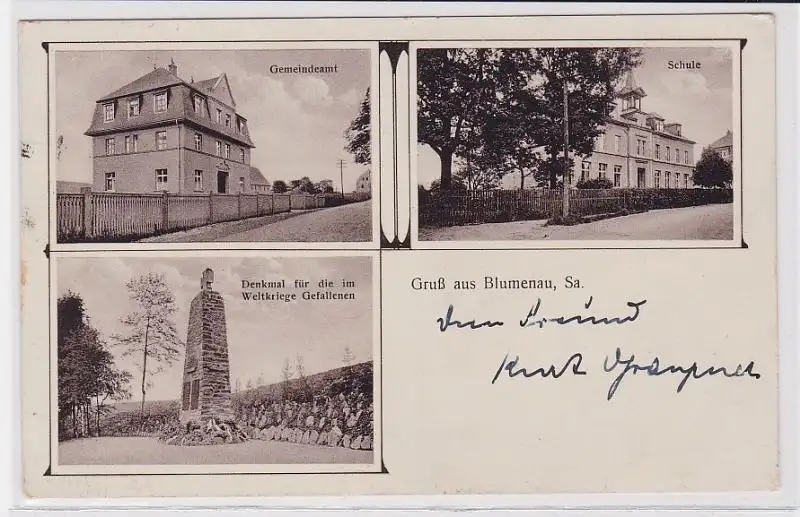 Gemeindeamt
Schule
Denkmal für die im
Weltkriege Gefallenen
Gruß aus Blumenau, Sa.
Freund
Kurt